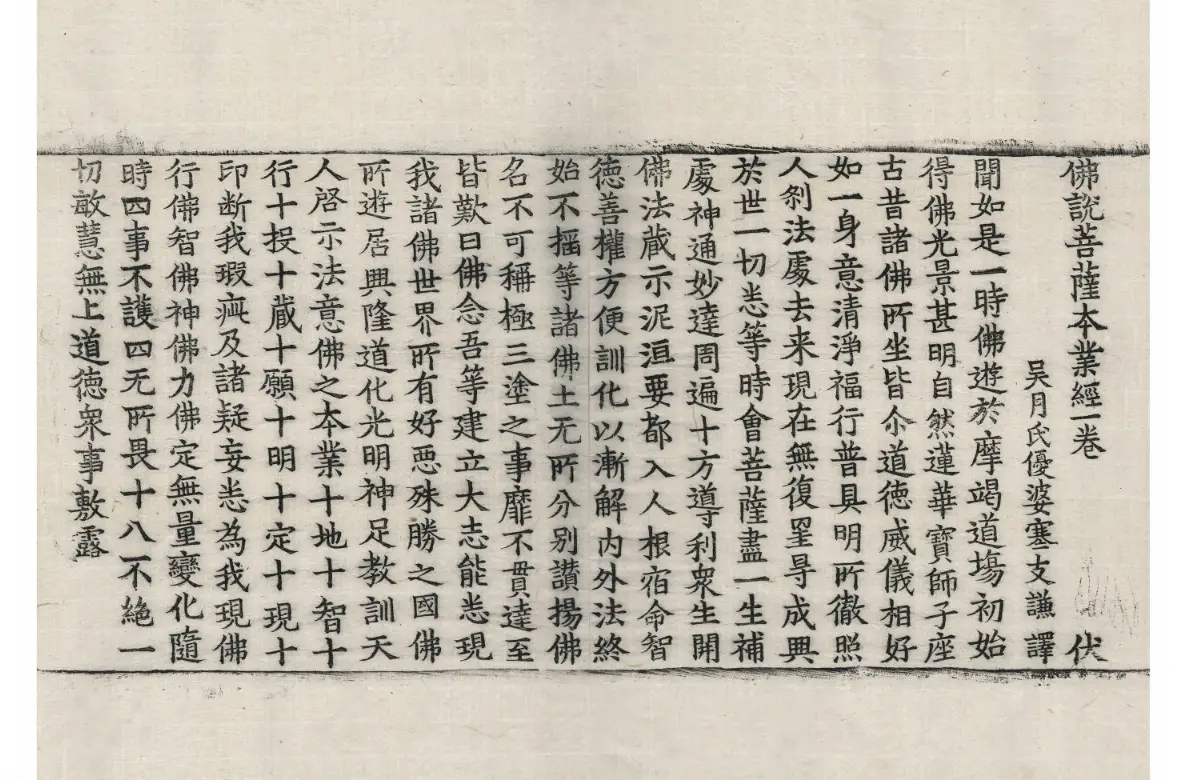 佛說菩薩本業經一卷 伏
吳月氏優婆塞支謙譯
聞如是一時佛遊於摩竭道場初始
得佛光景甚明自然蓮華寶師子座
古昔諸佛所坐皆尒道德威儀相好
如一身意清淨福行普具明所徹照
人剎法處去来現在無復罣㝵成興
於世一切恙等時會菩薩盡一生補
處神通妙達周遍十方導利衆生開
佛法藏示泥洹要都入人根宿命智
德善權方便訓化以漸解内外法終
始不摇等諸佛土无所分别讃揚佛
名不可稱極三塗之事靡不貫達至
皆歎曰佛念吾等建立大志能恙現
我諸佛世界所有好惡殊勝之國佛
所遊居興隆道化光明神足教訓天
人啓示法意佛之本業十地十智十
行十投十蔵十願十明十定十現十
印断我瑕疵及諸疑妄恙為我現佛
行佛智佛神佛力佛定無量變化隨
時四事不護四无所畏十八不絶一
切敢慧無上道徳衆事敷露